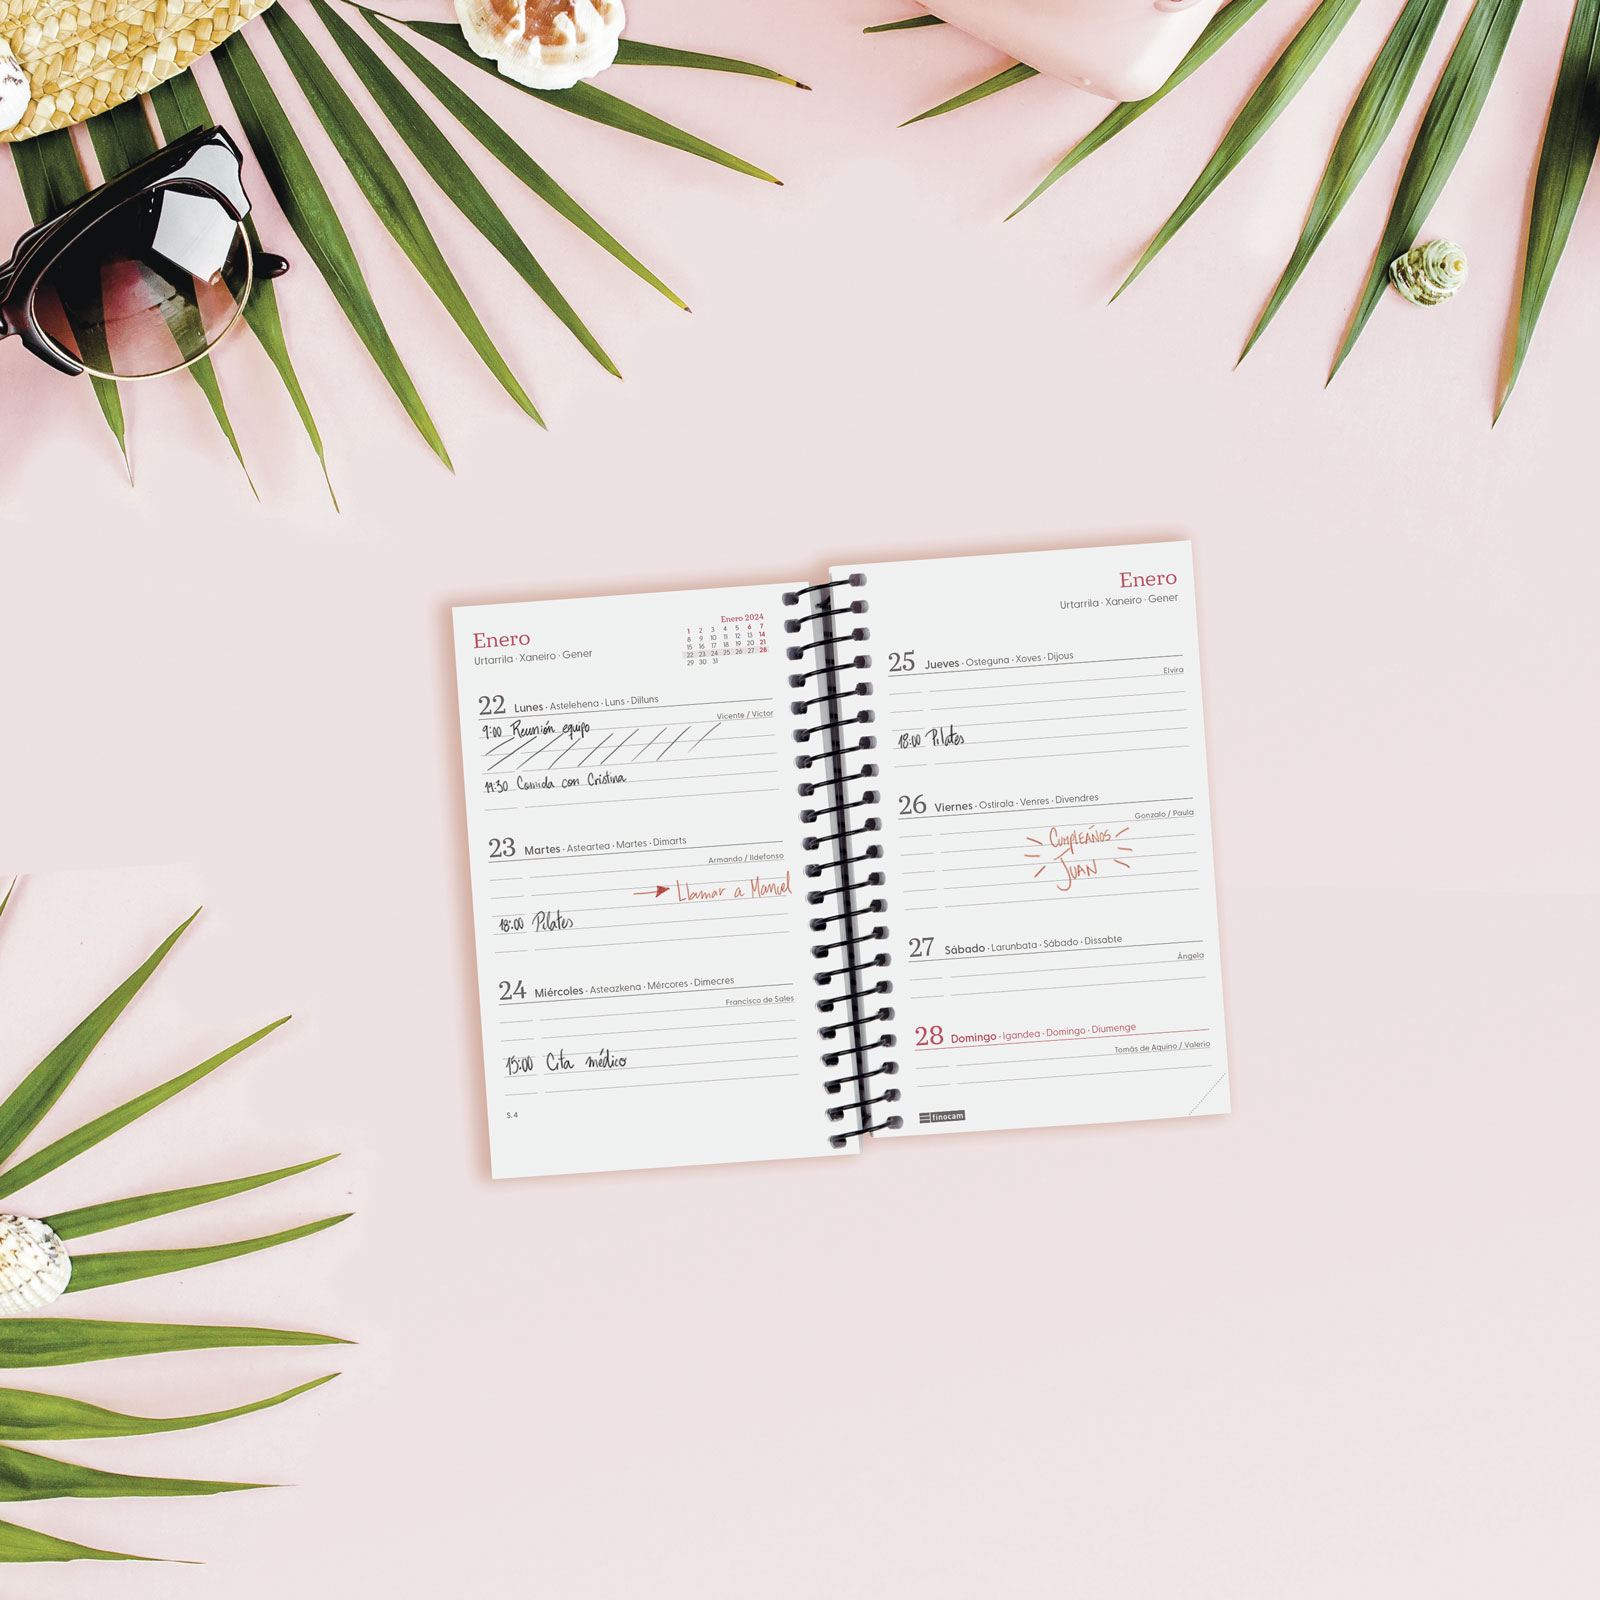 Enero
Urtarrila · Xaneiro · Gener
Enero 2024
1 2 3 4 5 6 7
8 9 10 11 12 13 14
15 16 17 18 19 20 21
22 23 24 25 26 27 28
29 30 31
22 Lunes · Astelehena · Luns · Dilluns
Vicente / Víctor
9:00 Reunión equipo
14:30 Comida con Cristina
23 Martes · Asteartea · Martes · Dimarts
Armando / Ildefonso
Llamar a Manuel
18:00 Pilates
24 Miércoles · Asteazkena · Mércores · Dimecres
Francisco de Sales
15:00 Cita médico
S. 4
Enero
Urtarrila · Xaneiro · Gener
25 Jueves · Osteguna · Xoves · Dijous
Elvira
18:00 Pilates
26 Viernes · Ostirala · Venres · Divendres
Gonzalo / Paula
CUMPLEAÑOS
JUAN
27 Sábado · Larunbata · Sábado · Dissabte
Ángela
28 Domingo · Igandea · Domingo · Diumenge
Tomás de Aquino / Valerio
finocam